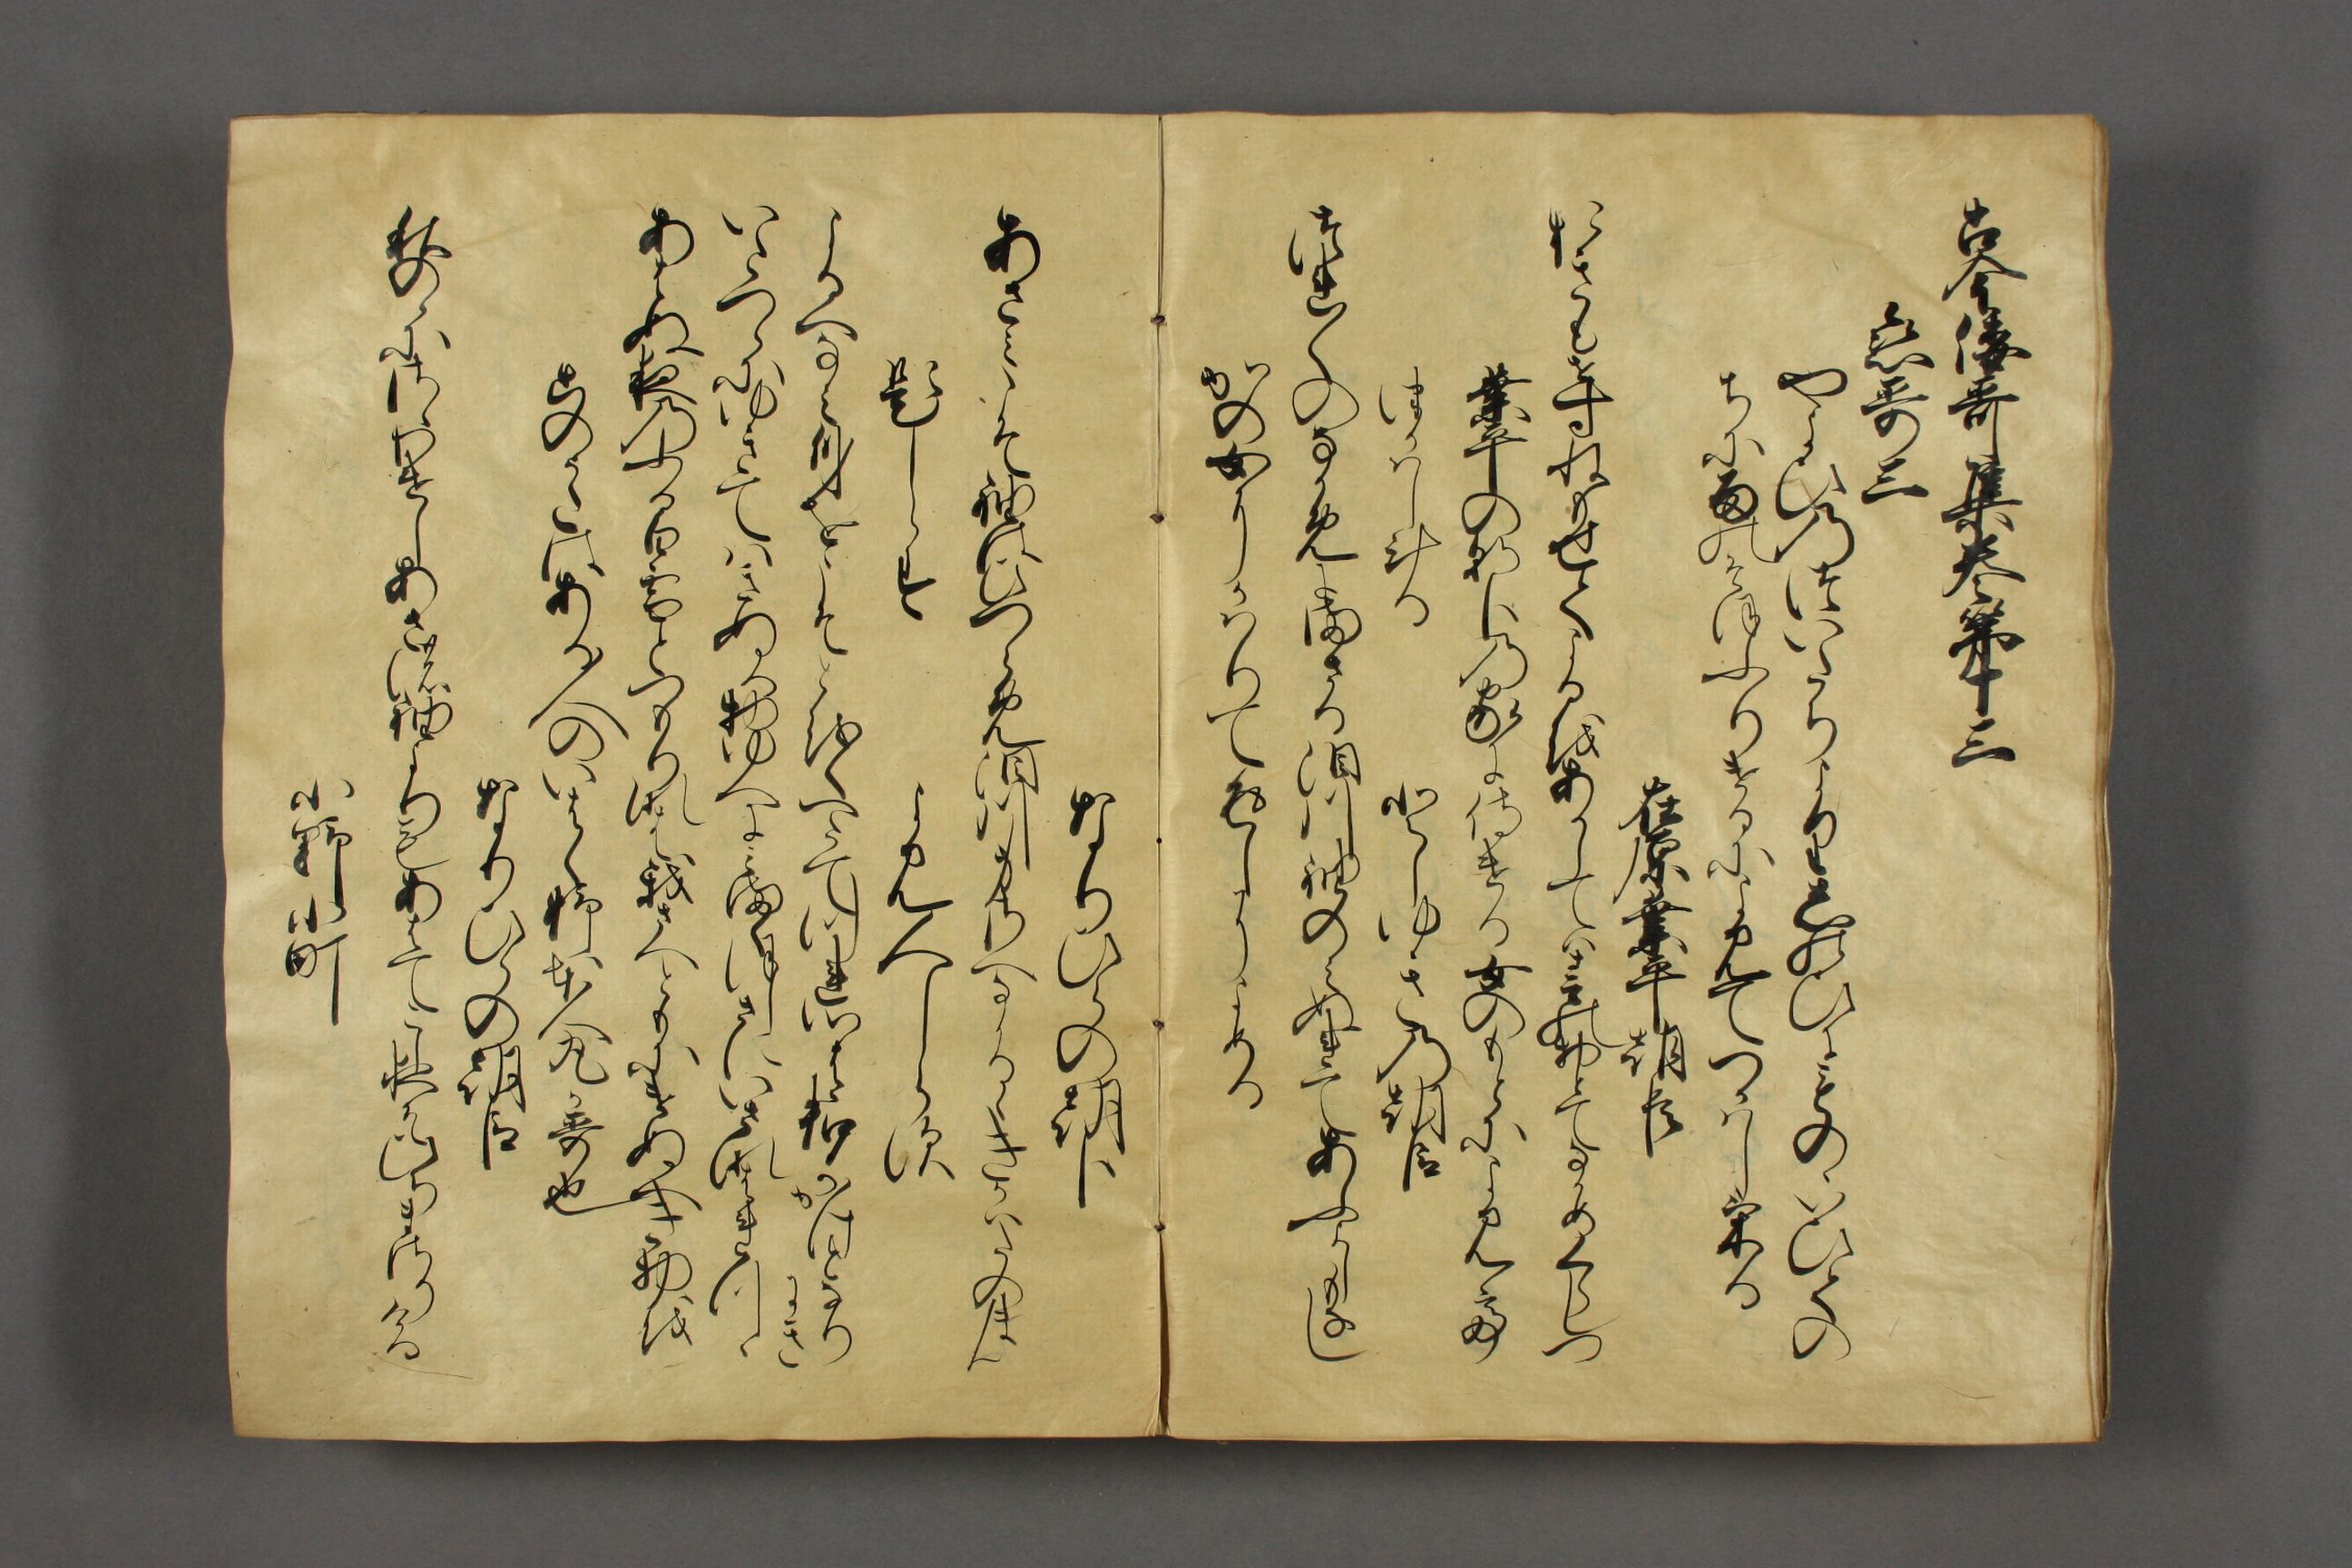 古今倭哥集巻第十三
恋哥三
やよひのついたちよりしのひにものいひての
ちに雨のそほふりけるによみてつかはしける
在原業平朝臣
おきもせすねもせてよるをあかしては春の物とてなかめくらしつ
業平の朝臣の家に侍ける女のもとによみて
つかはしける
としゆきの朝臣
つれ〳〵のなかめにまさる涙川袖のみぬれてあふよしもなし
かの女にかはりて返しによめる
なりひらの朝臣
あさみこそ袖はひつらめ涙川身さへなかるときかはたのまん
題しらす
よみ人しらす
よるへなみ身をこそとをくへたてつれ心は君かかけとなりにき
いたつらにゆきてはきぬる物ゆへに見まくほしさにいさなはれつゝ
あはぬ夜のふる白雪とつもりなは我さへともにけぬへき物を
このうたはある人のいはく柿本人丸か哥也
なりひらの朝臣
秋のゝにさゝわけしあさの袖よりもあはてこしよそひちまさりける
小野小町